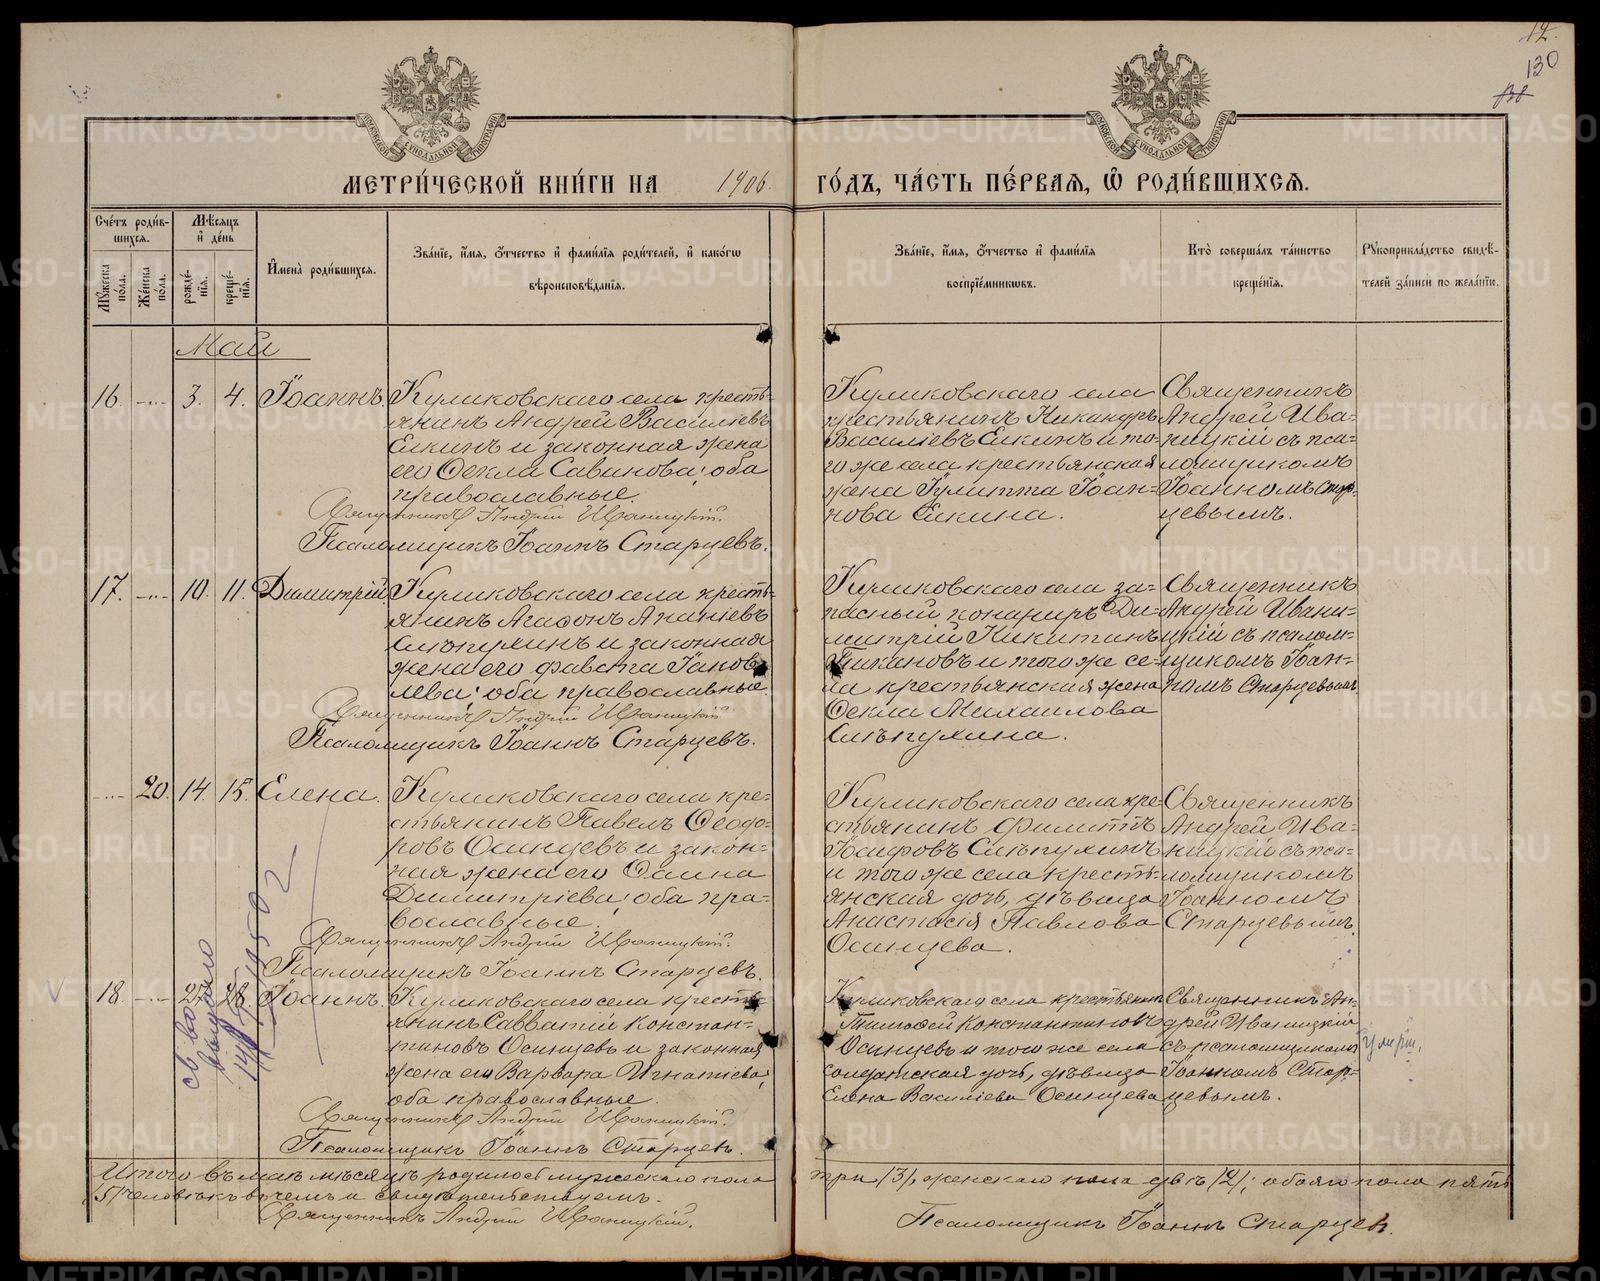 14.
130
МЕТРИ́ЧЕСКОЙ КНИ́ГИ НА 1906 ГО́ДЪ, ЧА́СТЬ ПЕ́РВАѦ, Ѡ҆ РОДИ́ВШИХСѦ.
Сче́тъ роди́в-
шихсѧ.
Мѣ́сѧцъ
и҆ де́нь
Мꙋ́жеска по́ла.
Же́нска по́ла.
рожде́-
нїѧ.
креще́-
нїѧ.
И҆мена̀ роди́вшихсѧ.
Зва́нїе, и҆́мѧ, ѻ҆́тчество и҆ фами́лїѧ роди́телей, и҆ како́гѡ
вѣроисповѣ́данїѧ.
Зва́нїе, и҆́мѧ, ѻ҆́тчество и҆ фами́лїѧ
воспрїе́мникѡвъ.
Кто̀ соверша́лъ та́инство
креще́нїѧ.
Рꙋкоприкла́дство свидѣ́-
телей за́писи по жела́нїю.
Май
16. -..- 3. 4. Іоаннъ.
Куликовскаго села кресть-
янинъ Андрей Васильевъ
Елкинъ и законная жена
его Ѳекла Савинова; оба
православные.
Священникъ Андрей Иваницкій.
Псаломщикъ Іоаннъ Старцевъ.
Куликовскаго села
крестьянинъ Никандръ
Васильевъ Елкинъ и то-
го же села крестьянская
жена Іулитта Іоан-
нова Елкина.
Священникъ
Андрей Ива-
ницкій съ пса-
ломщикомъ
Іоанномъ Стар-
цевымъ.
17. -..- 10. 11. Димитрій
Куликовскаго села кресть-
янинъ Агафонъ Ананіевъ
Слѣпухинъ и законная
жена его Фавста Іаков-
лева; оба православные.
Священникъ Андрей Иваницкій
Псаломщикъ Іоаннъ Старцевъ.
Куликовскаго села за-
пасный канониръ Ди-
митрій Никитинъ
и того же се-
ла крестьянская жена
Ѳекла Михаилова
Слѣпухина.
Священникъ
Андрей Ивани-
цкій съ псалом-
щикомъ Іоан-
номъ Старцевымъ.
-..- 20. 14. 15. Елена.
Куликовскаго села кре-
стьянинъ Павелъ Ѳеодо-
ровъ Осинцевъ и закон-
ная жена его
Димитріева; оба пра-
вославные.
Священникъ Андрей Иваницкій.
Псаломщикъ Іоаннъ Старцевъ.
Куликовскаго села кре-
стьянинъ Филиппъ
Іосифовъ Слѣпухинъ
и того же села кресть-
янская дочь, дѣвица
Анастасія Павлова
Осинцева.
Священникъ
Андрей Ива-
ницкій съ пса-
ломщикомъ
Іоанномъ
Старцевымъ.
18. -..- 27. 28. Іоаннъ.
Куликовскаго села кресть-
янинъ Савватій Констан-
тиновъ Осинцевъ и законная
жена его Варвара Игнатіева;
оба православные.
Священникъ Андрей Иваницкій.
Псаломщикъ Іоаннъ Старцевъ.
Куликовскаго села крестьянинъ
Тимоѳей Константиновъ
Осинцевъ и того же села
солдатская дочь, дѣвица
Елена Васильева Осинцева
Священникъ Ан-
дрей Иваницкій
съ псаломщикомъ
Іоанномъ Стар-
цевымъ.
Итого въ маѣ мѣсяцѣ родилось мужескаго пола три /3/, женскаго пола двѣ /2/; обоего пола пять
/5/ человѣкъ въ чемъ и свидѣтельствуемъ.
Священникъ Андрей Иваницкій.
Псаломщикъ Іоаннъ Старцевъ.
METRIKI.GASO-URAL.RU